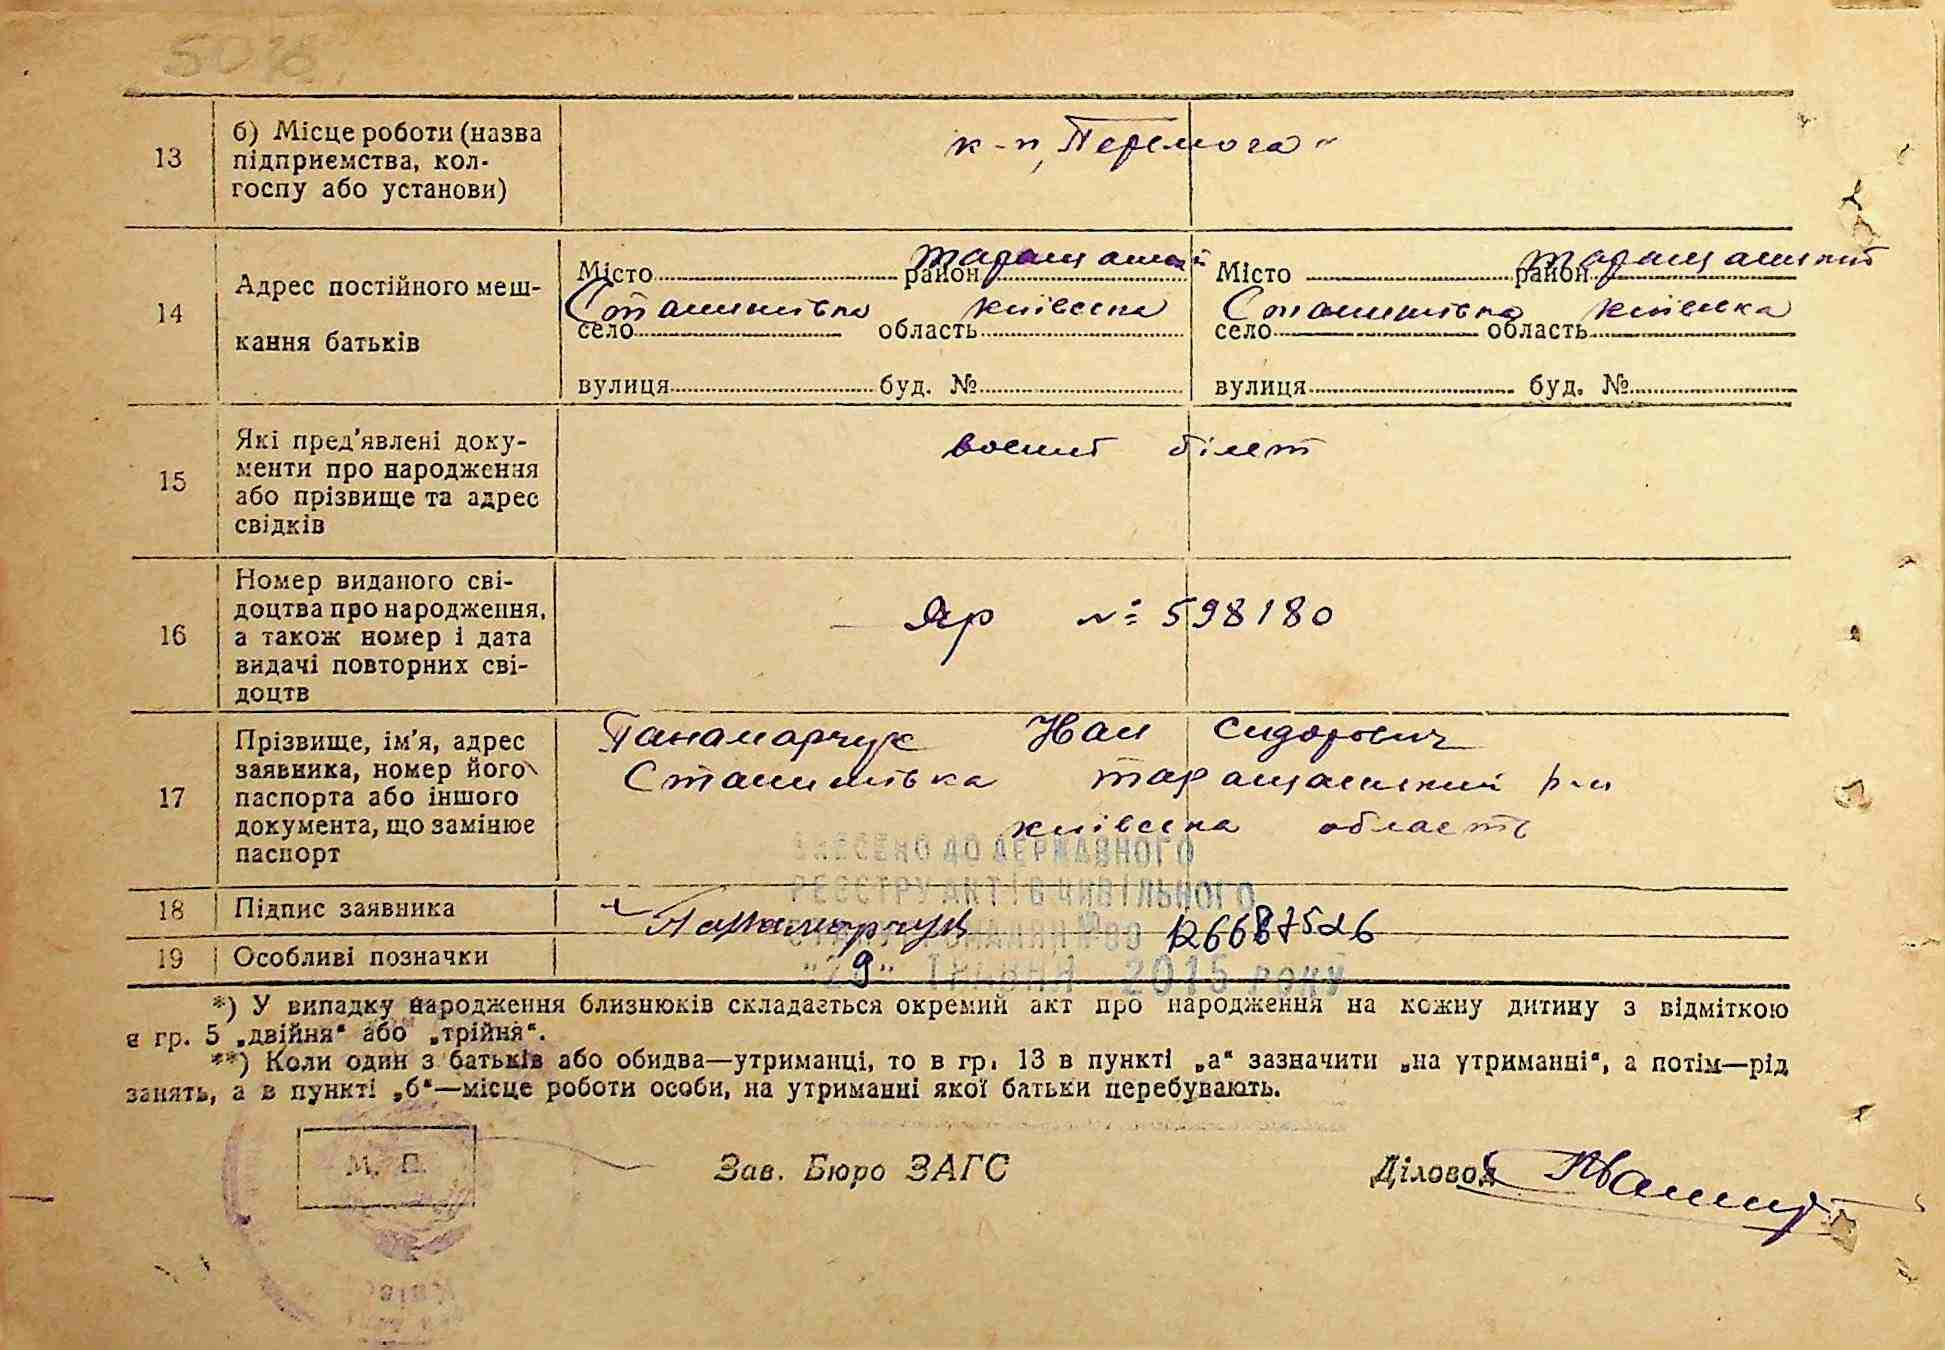 5016
13
б) Місце роботи (назва
підприємства, кол-
госпу або установи)
к-п „Перемога"
14
Адрес постійного меш-
кання батьків
Місто район Таращанський
село Станишівка область київська
вулиця буд. №
Місто район Таращанський
село Станишівка область київська
вулиця буд. №
15
Які пред'явлені доку-
менти про народження
або прізвище та адрес
свідків
воєний білет
16
Номер виданого сві-
доцтва про народження,
а також номер і дата
видачі повторних сві-
доцтв
Яр № 598180
17
Прізвище, ім'я, адрес
заявника, номер його
паспорта або іншого
документа, що замінює
паспорт
Панамарчук Иван Сидорович
Станишівка таращанский р-н
київська область
ВНЕСЕНО ДО ДЕРЖАВНОГО
РЕЄСТРУ АКТІВ ЦИВІЛЬНОГО
СТАНУ ГРОМАДЯН № 00 126687526
18
Підпис заявника
Панамарчук
19
Особливі позначки
ТРАВНЯ 2015 року
*) У випадку народження близнюків складається окремий акт про народження на кожну дитину з відміткою
в гр. 5 „двійня" або „трійня".
**) Коли один з батьків або обидва—утриманці, то в гр. 13 в пункті „а" зазначити „на утриманні", а потім—рід
занять, а в пункті „б"—місце роботи особи, на утриманні якої батьки перебувають.
М. П.
Зав. Бюро ЗАГС
Діловод